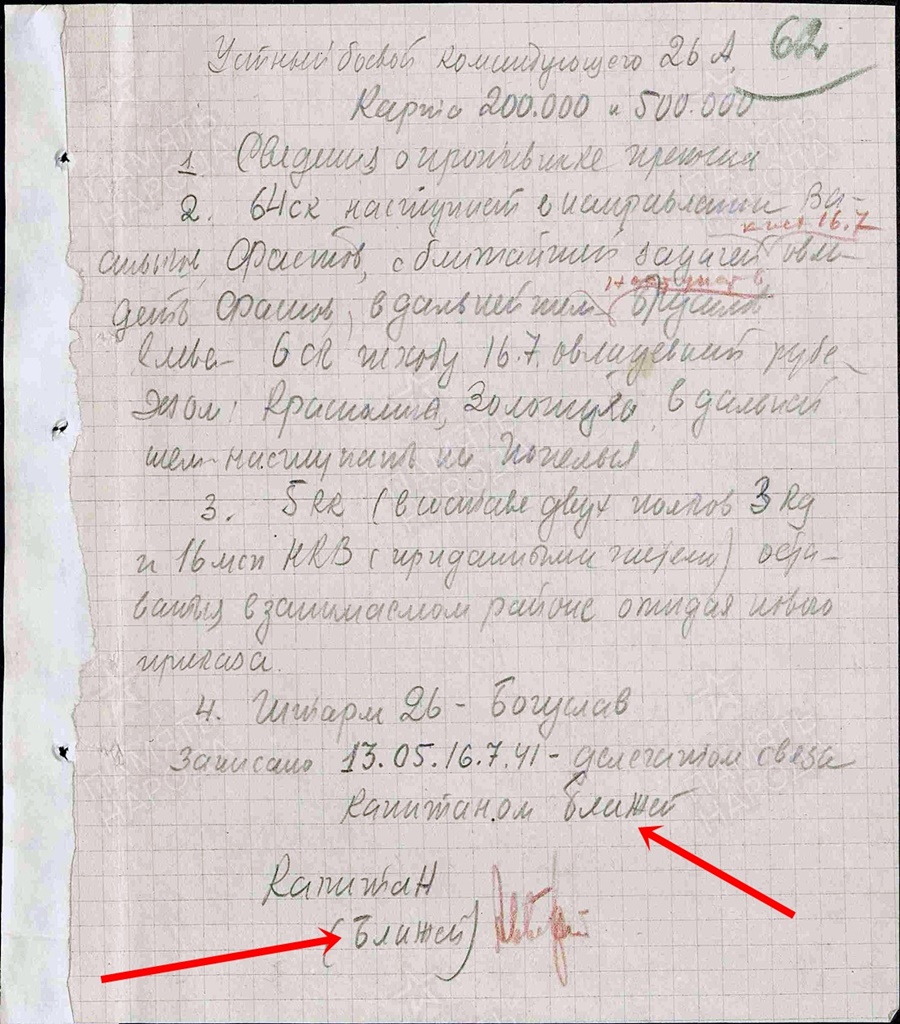 62
Устный боевой командующего 26 А.
Карта 200.000 и 500.000
1 Сведения о противнике прежния
2. 64 ск наступает в направлении Ва-
к исх 16.7
сильков, Фастов, с ближайшей задачей овла-
наступат в
деть Фастов, в дальнейшем Брусилов
Слева 6 ск к исходу 16.7. овладевший рубе-
жом: Краснолипа, Золотуха, в дальней
шем наступать на Попельня
3. 5 кк (в составе двух полков 3 кд
и 16 мсп НКВ с приданными частями) оста-
ваться в занимаемом районе ожидая нового
приказа.
4. Штарм 26 - Богуслав
Записано 13.05.16.7.41 - делегатом связа
Капитаном Ближей
Капитан
(Ближей)
ПАМЯТЬ НАРОДА